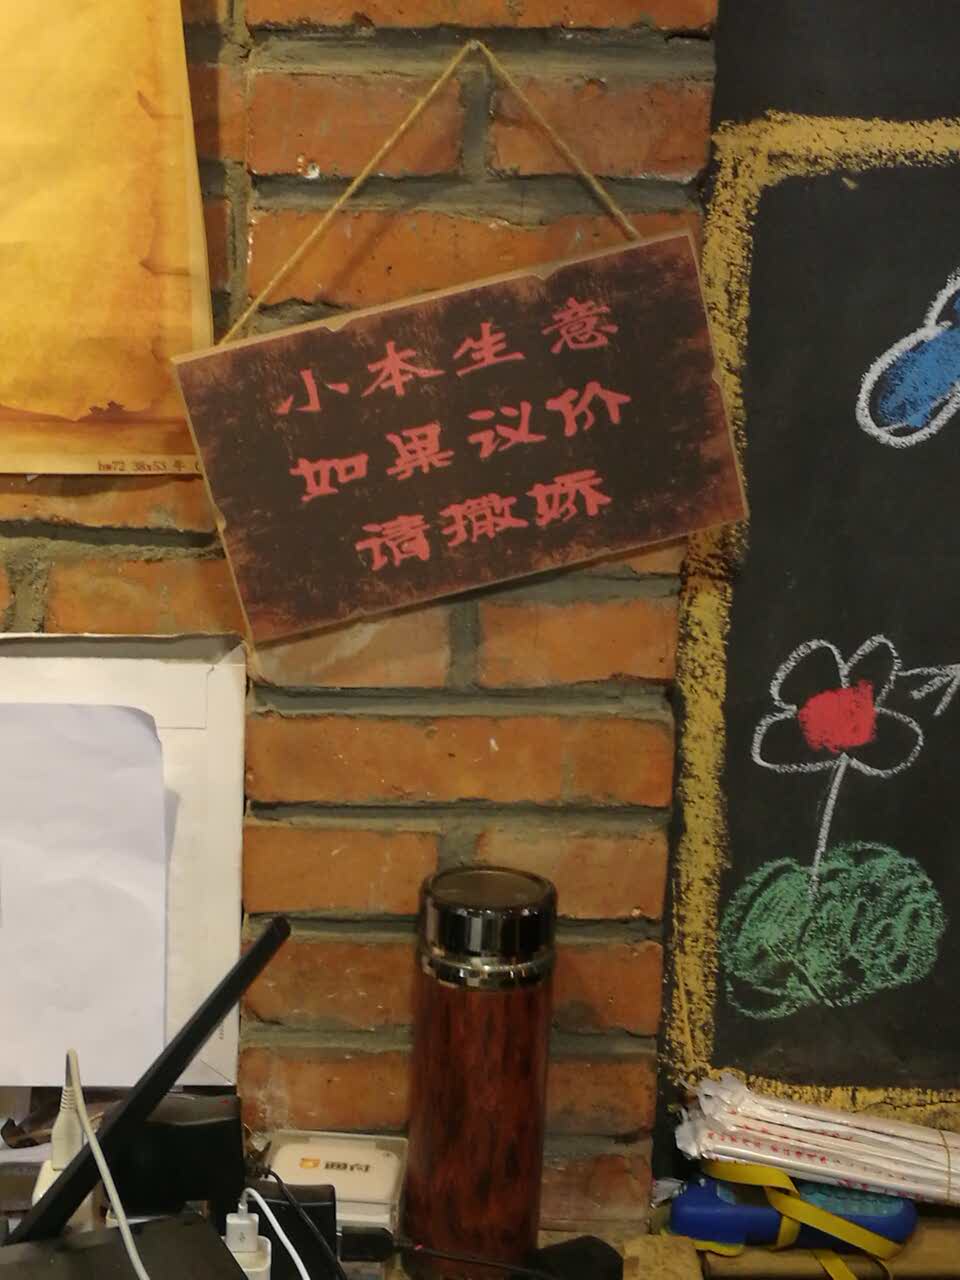 小本生意
如果议价
请撒娇
hw72 38x53 牛